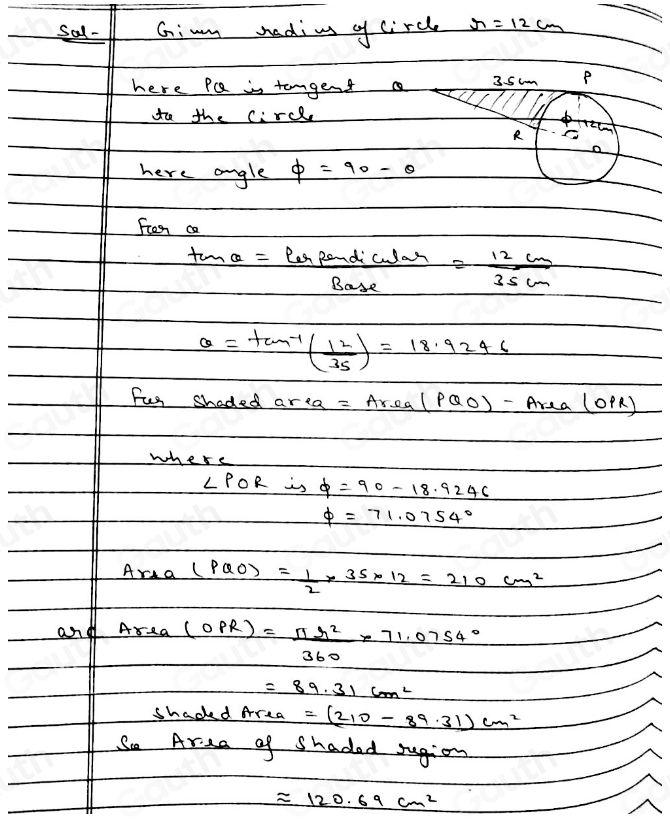 Sol- Given radius of circle r = 12 cm
here PQ is tangent
to the circle
Q 35cm P
R φ 12cm
O
here angle φ = 90 - θ
For Q
tan Q = Perpendicular / Base = 12 cm / 35 cm
Q = tan⁻¹(12/35) = 18.9246
For Shaded area = Area (PQO) - Area (OPR)
where
∠POR is φ = 90 - 18.9246
φ = 71.0754°
Area (PQO) = 1/2 × 35 × 12 = 210 cm²
and Area (OPR) = πr²/360 × 71.0754°
= 89.31 cm²
Shaded Area = (210 - 89.31) cm²
So Area of Shaded region
≈ 120.69 cm²